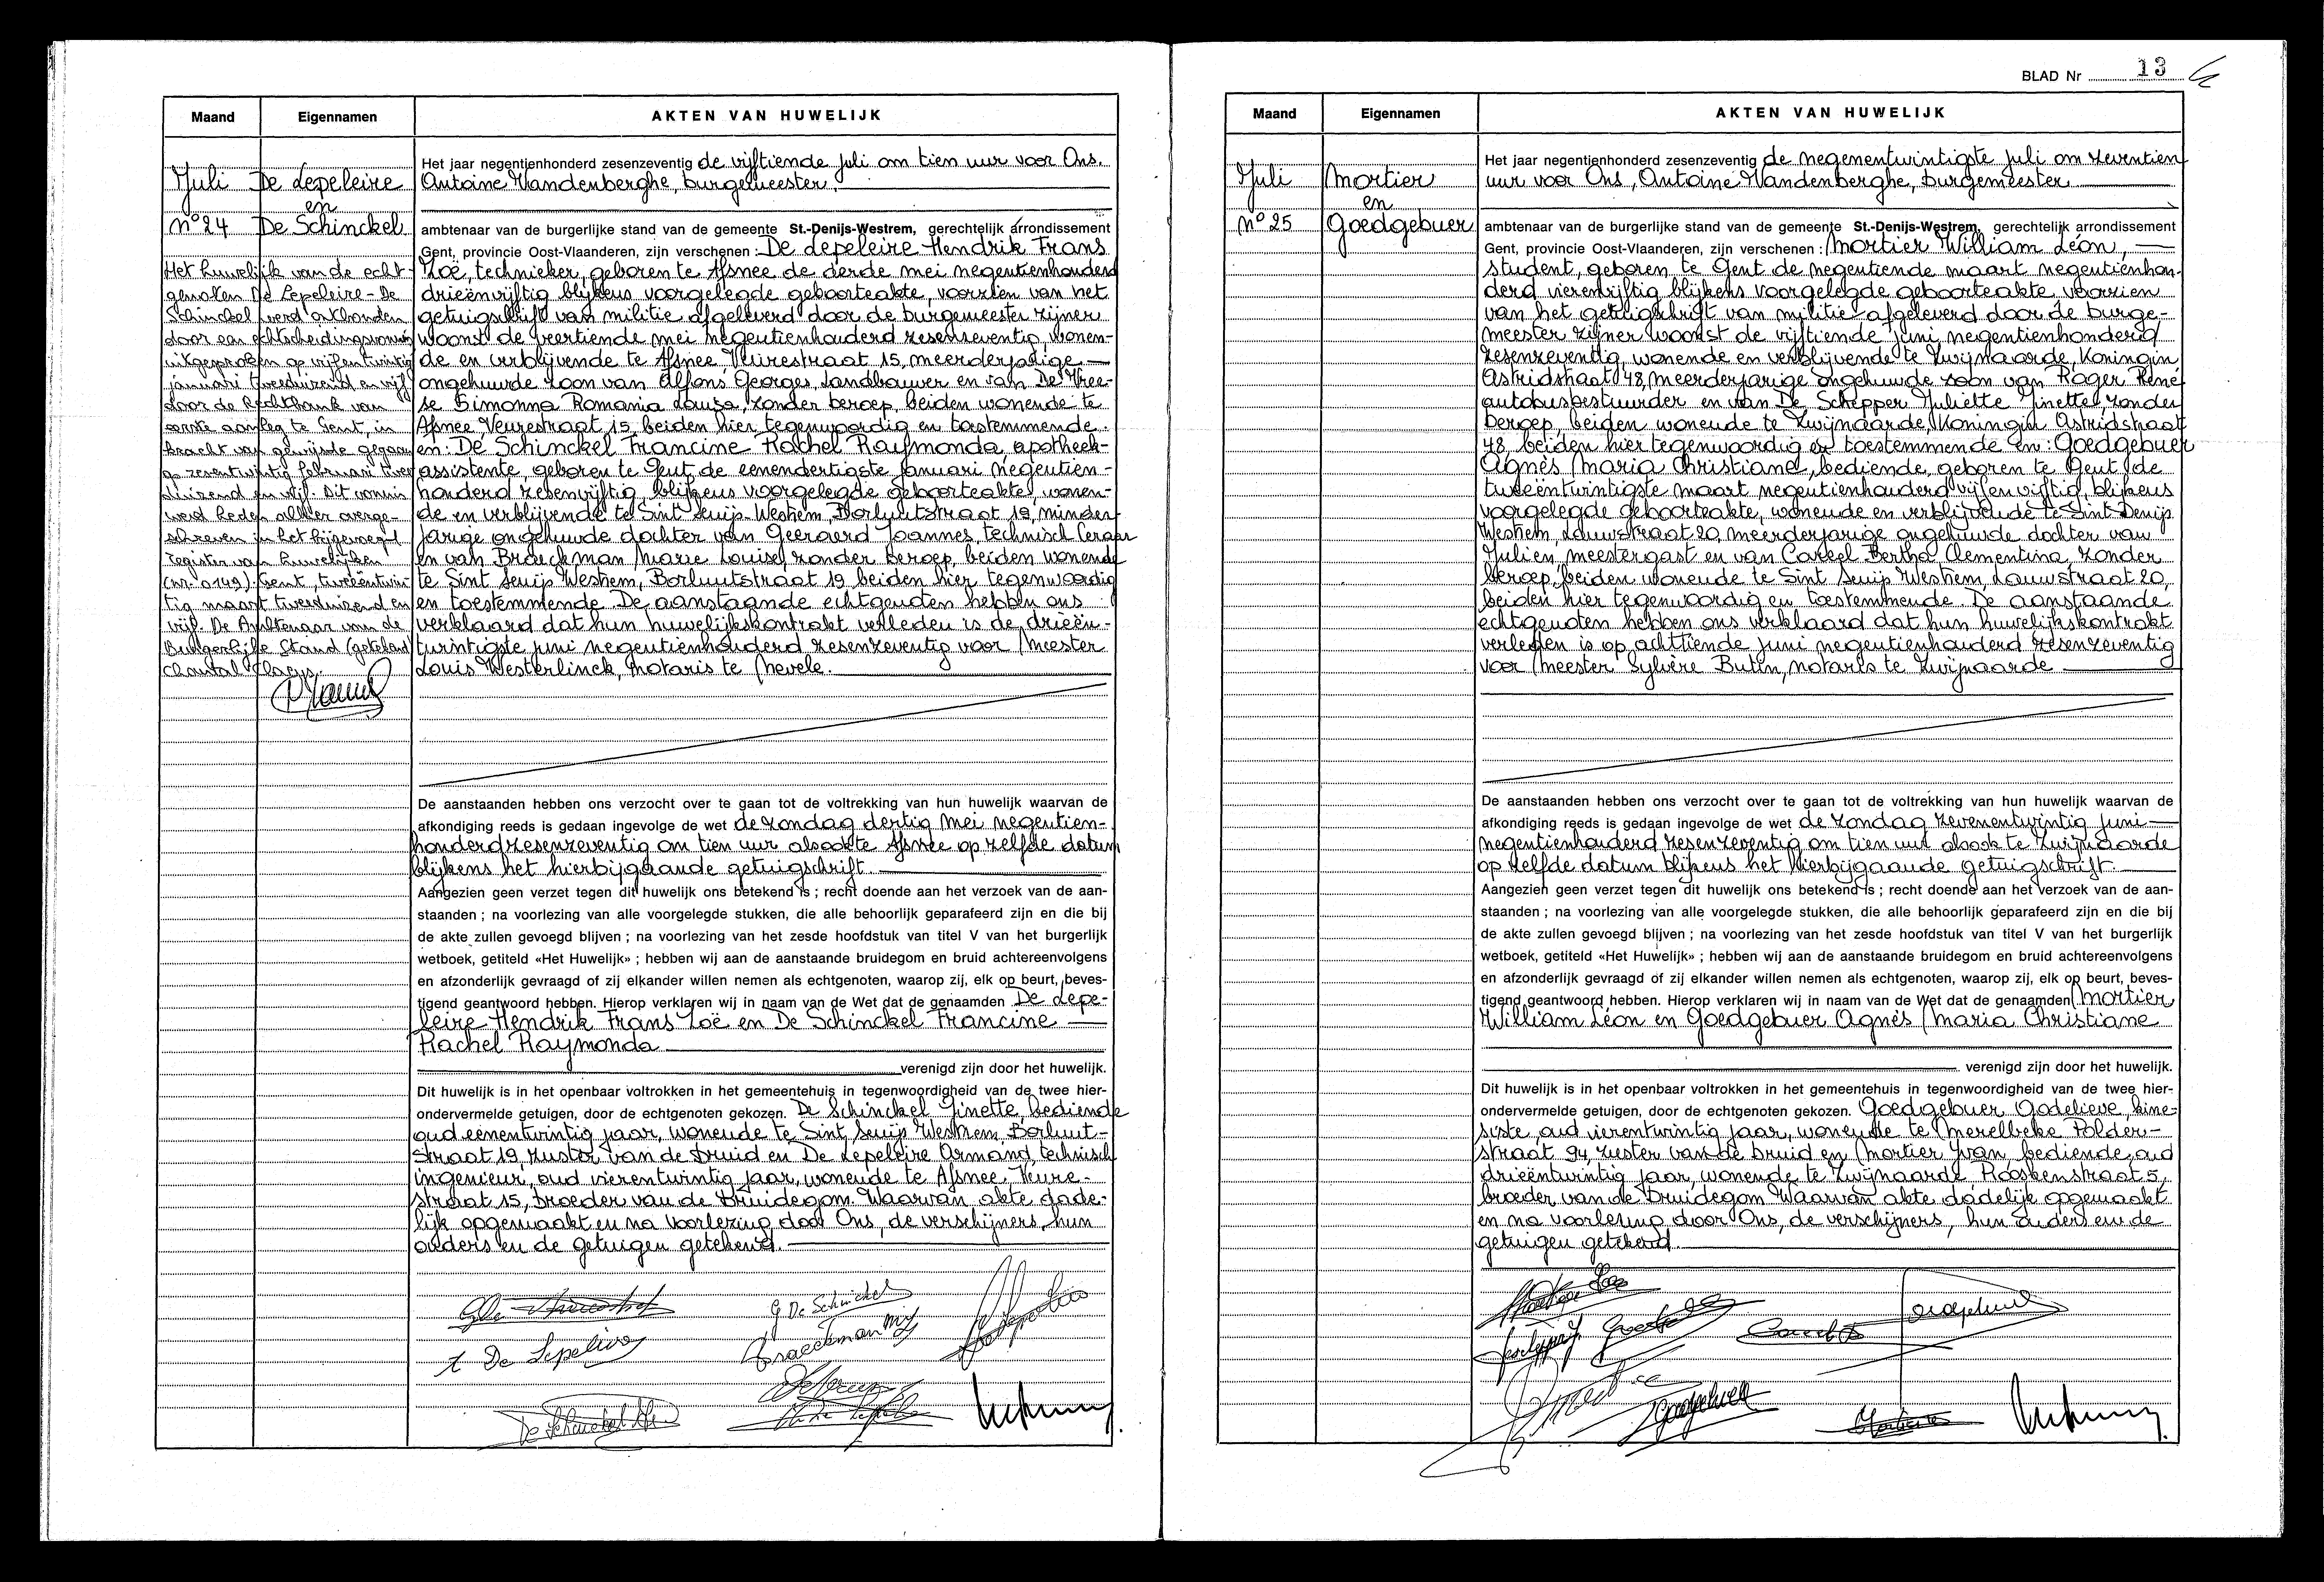 Maand Eigennamen AKTEN VAN HUWELIJK
Het jaar negentienhonderd zesenzeventig de vijftiende juli om tien uur voor Ons.
Juli De Lepeleire Antoine Vandenberghe, burgemeester.
en
n° 24 De Schinckel ambtenaar van de burgerlijke stand van de gemeente St.-Denijs-Westrem, gerechtelijk arrondissement
Gent, provincie Oost-Vlaanderen, zijn verschenen : De Lepeleire Hendrik Frans
Zoë, technieker, geboren te Afsnee de derde mei negentienhonderd
drieënvijftig blijkens voorgelegde geboorteakte, voorzien van het
getuigschrift van militie afgeleverd door de burgemeester zijner
woonst de veertiende mei negentienhonderd zesenzeventig, wonen-
de en verblijvende te Afsnee, Veurestraat 15, meerderjarige
ongehuwde zoon van Alfons Georges, landbouwer en van De Vree-
se Simonna Romania Louisa, zonder beroep, beiden wonende te
Afsnee Veurestraat 15 beiden hier tegenwoordig en toestemmende.
en: De Schinckel Francine Rachel Raymonda, apotheek-
assistente, geboren te Gent de eenendertigste januari negentien-
honderd zesenvijftig, blijkens voorgelegde geboorteakte, wonen-
de en verblijvende te Sint Denijs-Westrem, Borluutstraat 19, minder-
jarige ongehuwde dochter van Geeraerd Joannes, technisch leraar
en van Braeckman Marie Louise, zonder beroep, beiden wonende
te Sint Denijs Westrem, Borluutstraat 19 beiden hier tegenwoordig
en toestemmende. De aanstaande echtgenoten hebben ons
verklaard dat hun huwelijkskontrakt verleden is de drieën-
twintigste juni negentienhonderd zesenzeventig voor Meester
Louis Westerlinck, notaris te Nevele.
Het huwelijk van de echt-
genoten De Lepeleire - De
Schinckel werd ontbonden
door een echtscheidingsvonnis
uitgesproken op vijfentwintig
januari tweeduizend en vijf
door de Rechtbank van
eerste aanleg te Gent, in
kracht van gewijsde gegaan
op zesentwintig februari twee-
duizend en vijf. Dit vonnis
werd heden alhier overge-
schreven in het bijgevoegd
register van huwelijken
(nr. 0149). Gent, tweeëntwin-
tig maart tweeduizend en
vijf. De Ambtenaar van de
Burgerlijke Stand (getekend)
Chantal Claeys.
De aanstaanden hebben ons verzocht over te gaan tot de voltrekking van hun huwelijk waarvan de
afkondiging reeds is gedaan ingevolge de wet de zondag dertig mei negentien-
honderdzesenzeventig om tien uur alsook te Afsnee op zelfde datum
blijkens het hierbijgaande getuigschrift.
Aangezien geen verzet tegen dit huwelijk ons betekend is ; recht doende aan het verzoek van de aan-
staanden ; na voorlezing van alle voorgelegde stukken, die alle behoorlijk geparafeerd zijn en die bij
de akte zullen gevoegd blijven ; na voorlezing van het zesde hoofdstuk van titel V van het burgerlijk
wetboek, getiteld «Het Huwelijk» ; hebben wij aan de aanstaande bruidegom en bruid achtereenvolgens
en afzonderlijk gevraagd of zij elkander willen nemen als echtgenoten, waarop zij, elk op beurt, beves-
tigend geantwoord hebben. Hierop verklaren wij in naam van de Wet dat de genaamden De Lepe-
leire Hendrik Frans Zoë en De Schinckel Francine
Rachel Raymonda
verenigd zijn door het huwelijk.
Dit huwelijk is in het openbaar voltrokken in het gemeentehuis in tegenwoordigheid van de twee hier-
ondervermelde getuigen, door de echtgenoten gekozen. De Schinckel Ginette, bediende
oud eenentwintig jaar, wonende te Sint Denijs Westrem Borluut-
straat 19, zuster van de bruid en De Lepeleire Armand, technisch
ingenieur, oud vierentwintig jaar, wonende te Afsnee, Veure-
straat 15, broeder van de bruidegom. Waarvan akte dade-
lijk opgemaakt en na voorlezing door Ons, de verschijners, hun
ouders en de getuigen getekend.
G De Schinckel
Braeckman ML
A De Lepeleire
BLAD Nr 13
Maand Eigennamen AKTEN VAN HUWELIJK
Het jaar negentienhonderd zesenzeventig de negenentwintigste juli om zeventien
Juli Mortier uur voor Ons, Antoine Vandenberghe, burgemeester
en
n° 25 Goedgebuer ambtenaar van de burgerlijke stand van de gemeente St.-Denijs-Westrem, gerechtelijk arrondissement
Gent, provincie Oost-Vlaanderen, zijn verschenen : Mortier William Léon,
student, geboren te Gent de negentiende maart negentienhon-
derd vierenvijftig blijkens voorgelegde geboorteakte, voorzien
van het getuigschrift van militie afgeleverd door de burge-
meester zijner woonst de vijftiende juni negentienhonderd
zesenzeventig, wonende en verblijvende te Zwijnaarde, Koningin
Astridstraat 48, meerderjarige ongehuwde zoon van Roger René
autobusbestuurder en van De Schepper Juliette Ginette, zonder
beroep, beiden wonende te Zwijnaarde, Koningin Astridstraat
48, beiden hier tegenwoordig en toestemmende en: Goedgebuer
Agnès Maria Christiane, bediende, geboren te Gent de
tweeëntwintigste maart negentienhonderd vijfenvijftig, blijkens
voorgelegde geboorteakte, wonende en verblijvende te Sint Denijs
Westrem, Lauwstraat 20, meerderjarige ongehuwde dochter van
Julien, meestergast en van Careel Bertha Clementina, zonder
beroep, beiden wonende te Sint Denijs Westrem, Lauwstraat 20,
beiden hier tegenwoordig en toestemmende. De aanstaande
echtgenoten hebben ons verklaard dat hun huwelijkskontrakt
verleden is op achttiende juni negentienhonderd zesenzeventig
voor Meester Sylvère Butin, notaris te Zwijnaarde
De aanstaanden hebben ons verzocht over te gaan tot de voltrekking van hun huwelijk waarvan de
afkondiging reeds is gedaan ingevolge de wet de zondag zevenentwintig juni
negentienhonderd zesenzeventig om tien uur alsook te Zwijnaarde
op zelfde datum blijkens het hierbijgaande getuigschrift.
Aangezien geen verzet tegen dit huwelijk ons betekend is ; recht doende aan het verzoek van de aan-
staanden ; na voorlezing van alle voorgelegde stukken, die alle behoorlijk geparafeerd zijn en die bij
de akte zullen gevoegd blijven ; na voorlezing van het zesde hoofdstuk van titel V van het burgerlijk
wetboek, getiteld «Het Huwelijk» ; hebben wij aan de aanstaande bruidegom en bruid achtereenvolgens
en afzonderlijk gevraagd of zij elkander willen nemen als echtgenoten, waarop zij, elk op beurt, beves-
tigend geantwoord hebben. Hierop verklaren wij in naam van de Wet dat de genaamden Mortier
William Léon en Goedgebuer Agnès Maria Christiane
verenigd zijn door het huwelijk.
Dit huwelijk is in het openbaar voltrokken in het gemeentehuis in tegenwoordigheid van de twee hier-
ondervermelde getuigen, door de echtgenoten gekozen. Goedgebuer Godelieve, kine-
siste, oud vierentwintig jaar, wonende te Merelbeke Polder-
straat 94 zuster van de bruid en Mortier Yvan, bediende, oud
drieëntwintig jaar, wonende te Zwijnaarde, Rooskenstraat 5,
broeder van de bruidegom. Waarvan akte dadelijk opgemaakt
en na voorlezing door Ons, de verschijners, hun ouders en de
getuigen getekend.